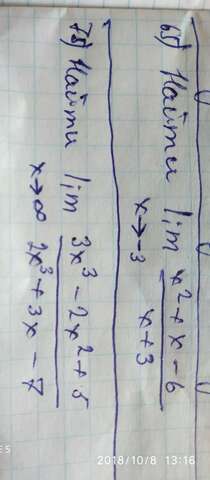 65) Найти lim x²+x-6
x→-3 x+3
75) Найти lim 3x³-2x²+5
x→∞ 2x³+3x-7
2018/10/8 13:16